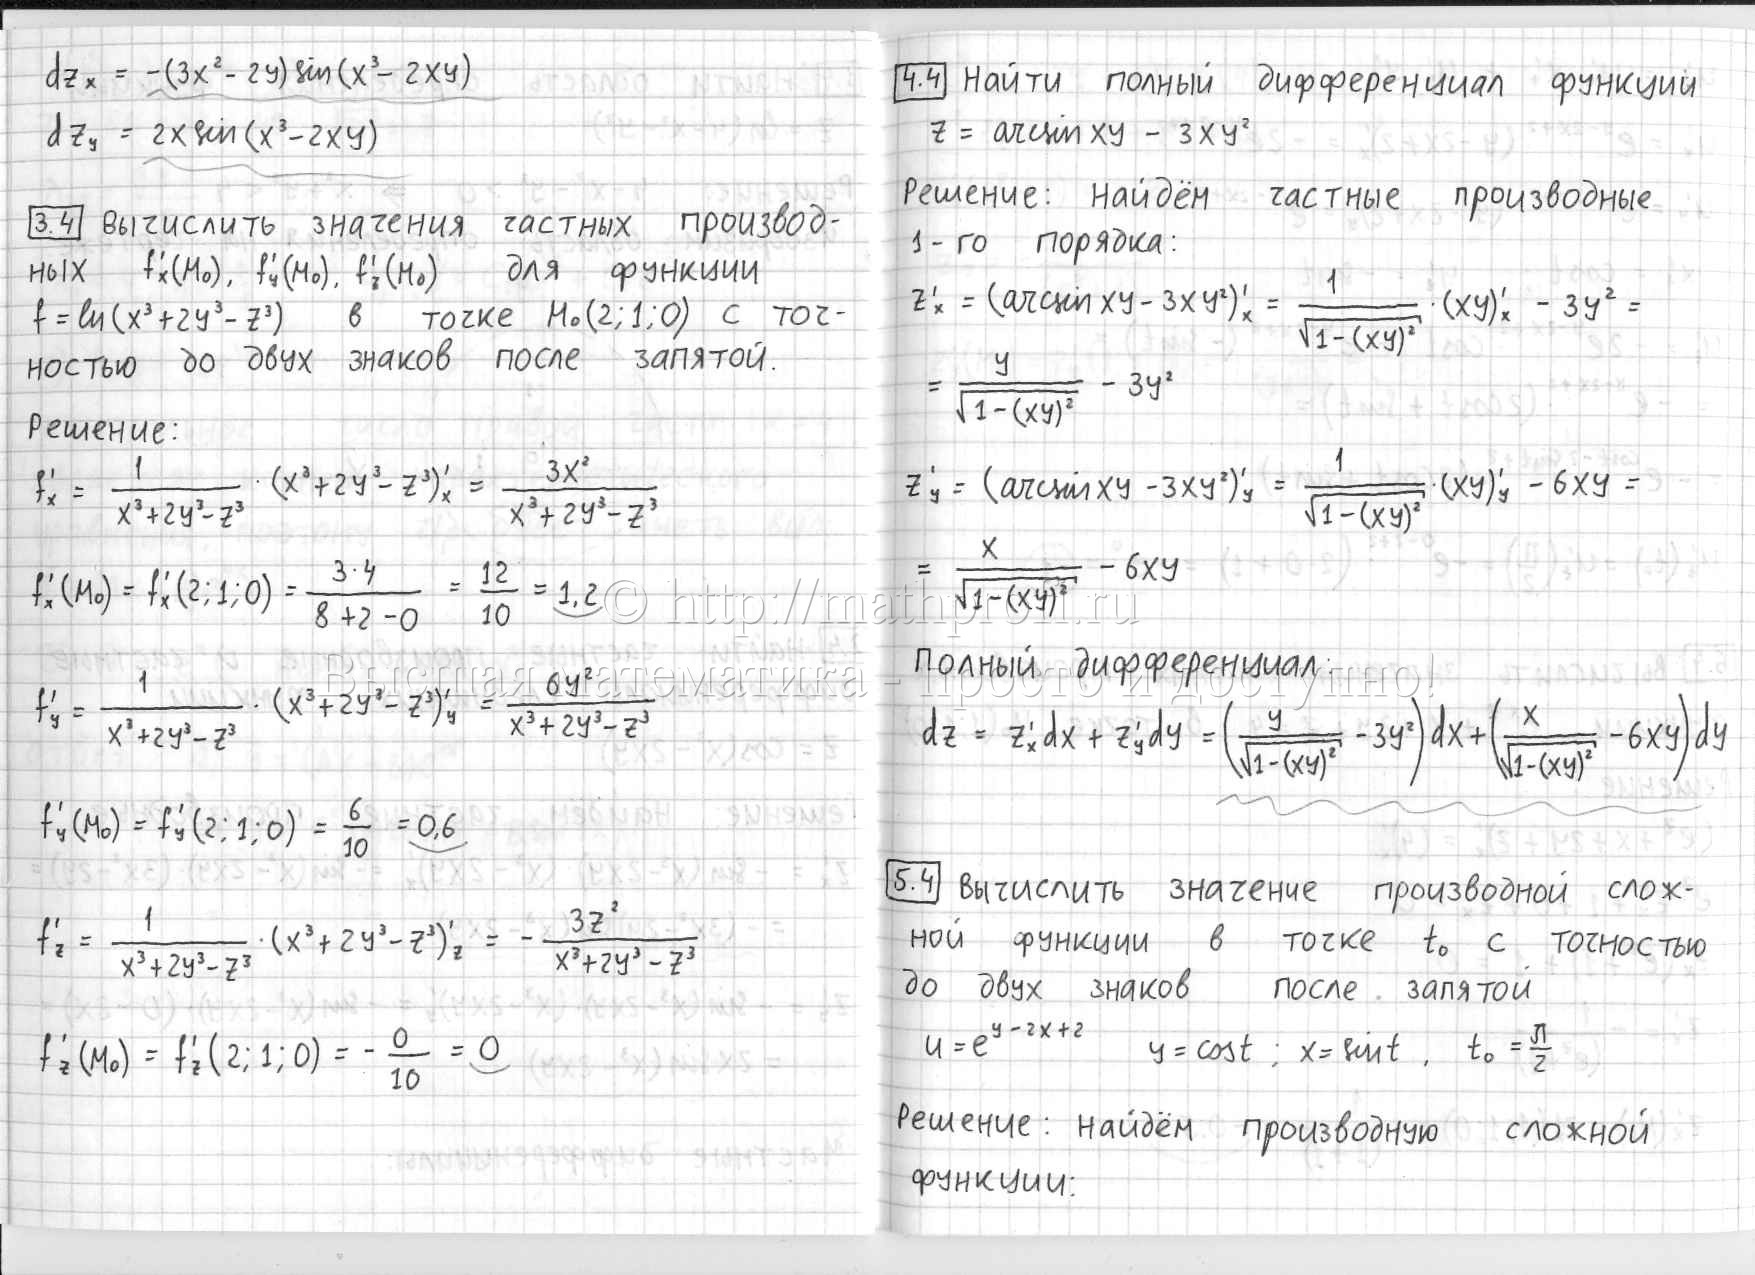 dz_x = -(3x² - 2y) sin(x³ - 2xy)
dz_y = 2x sin(x³ - 2xy)
3.4 Вычислить значения частных производ-
ных f'_x(M₀), f'_y(M₀), f'_z(M₀) для функции
f = ln(x³ + 2y³ - z³) в точке M₀(2; 1; 0) с точ-
ностью до двух знаков после запятой.
Решение:
f'_x = 1/(x³ + 2y³ - z³) · (x³ + 2y³ - z³)'_x = 3x²/(x³ + 2y³ - z³)
f'_x(M₀) = f'_x(2; 1; 0) = (3·4)/(8 + 2 - 0) = 12/10 = 1,2
f'_y = 1/(x³ + 2y³ - z³) · (x³ + 2y³ - z³)'_y = 6y²/(x³ + 2y³ - z³)
f'_y(M₀) = f'_y(2; 1; 0) = 6/10 = 0,6
f'_z = 1/(x³ + 2y³ - z³) · (x³ + 2y³ - z³)'_z = - 3z²/(x³ + 2y³ - z³)
f'_z(M₀) = f'_z(2; 1; 0) = - 0/10 = 0
4.4 Найти полный дифференциал функции
z = arcsin xy - 3xy²
Решение: Найдём частные производные
1-го порядка:
z'_x = (arcsin xy - 3xy²)'_x = 1/√(1-(xy)²) · (xy)'_x - 3y² =
= y/√(1-(xy)²) - 3y²
z'_y = (arcsin xy - 3xy²)'_y = 1/√(1-(xy)²) · (xy)'_y - 6xy =
= x/√(1-(xy)²) - 6xy
Полный дифференциал:
dz = z'_x dx + z'_y dy = (y/√(1-(xy)²) - 3y²) dx + (x/√(1-(xy)²) - 6xy) dy
5.4 Вычислить значение производной слож-
ной функции в точке t₀ с точностью
до двух знаков после запятой
u = e^(y-2x+2) y = cost ; x = sint , t₀ = π/2
Решение: Найдём производную сложной
функции:
© http://mathprofi.ru
Высшая математика - просто и доступно!